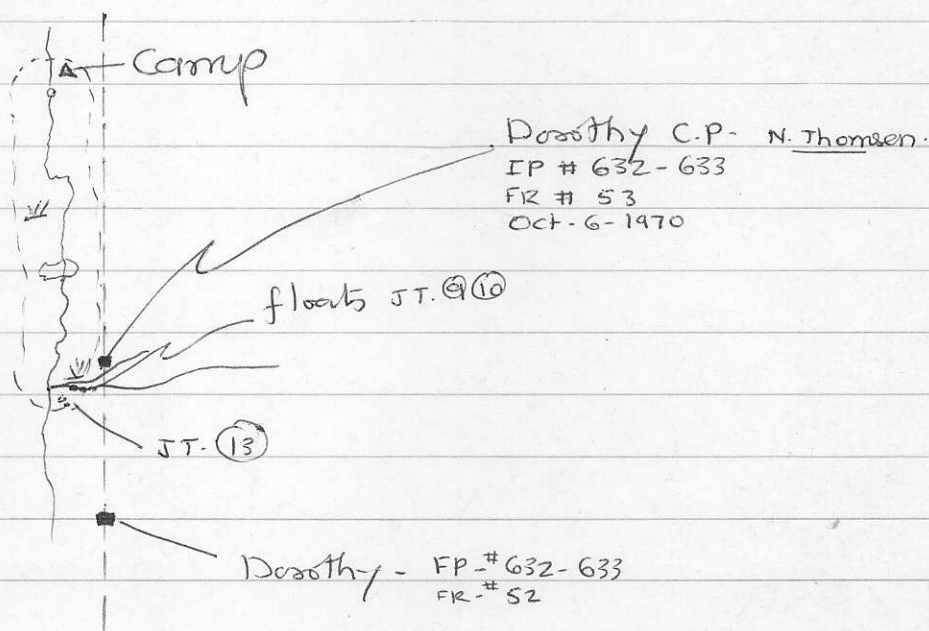 Camp
Dorothy C.P- N. Thomsen.
IP # 632-633
FR # 53
Oct-6-1970
floats JT. 9 10
JT. 13
Dorothy - FP-# 632-633
FR-# 52